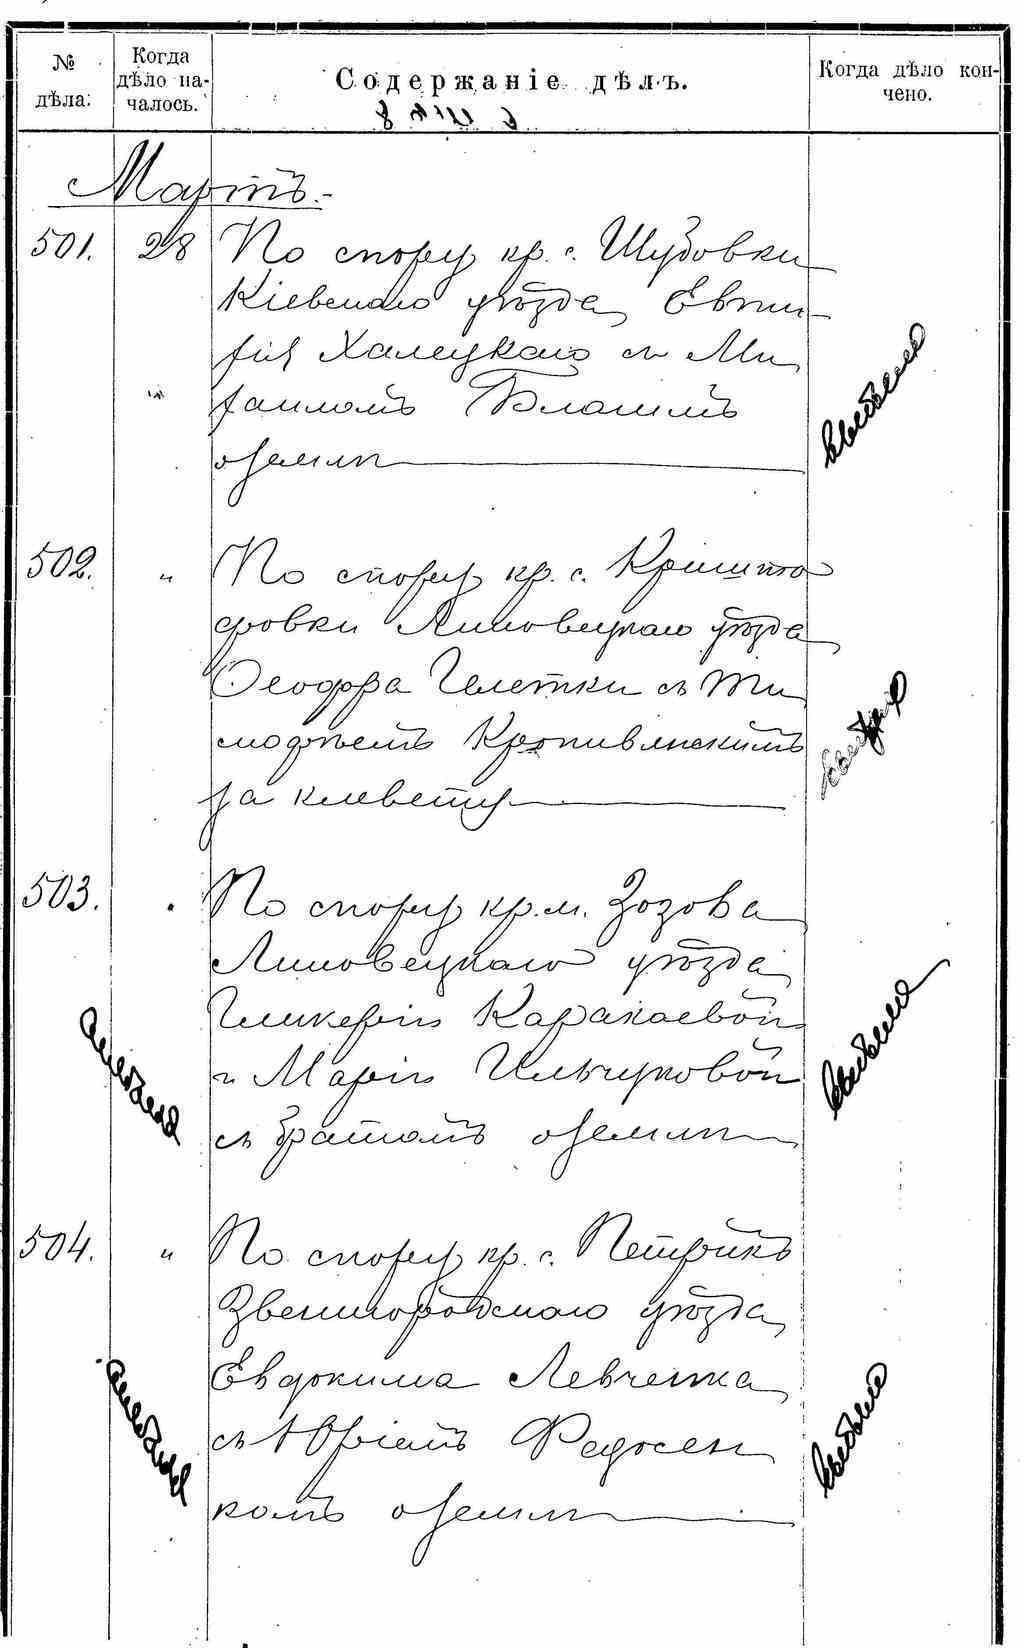 № дѣла.
Когда дѣло на-
чалось.
Содержаніе дѣлъ.
Когда дѣло кон-
чено.
Мартъ.
501. 28 По спору кр. с. Шубовки
Кіевскаго уѣзда, Евти
фія Халецкаго съ Ми
хаиломъ
о земли
502. " По спору кр. с. Криштo
фовки Липовецкаго уѣзда
Ѳеодора Гилетки съ Ти
мофѣемъ Кропивянскимъ
за клевету
503. " По спору кр. м. Зозова
Липовецкаго уѣзда,
Гликеріи Каракаевой
и Маріи Ильчуковой
съ братомъ о земли
504. " По спору кр. с. Петрикъ
Звенигородскаго уѣзда,
Евдокима Левченка,
съ Юріемъ Федосен
комъ о земли